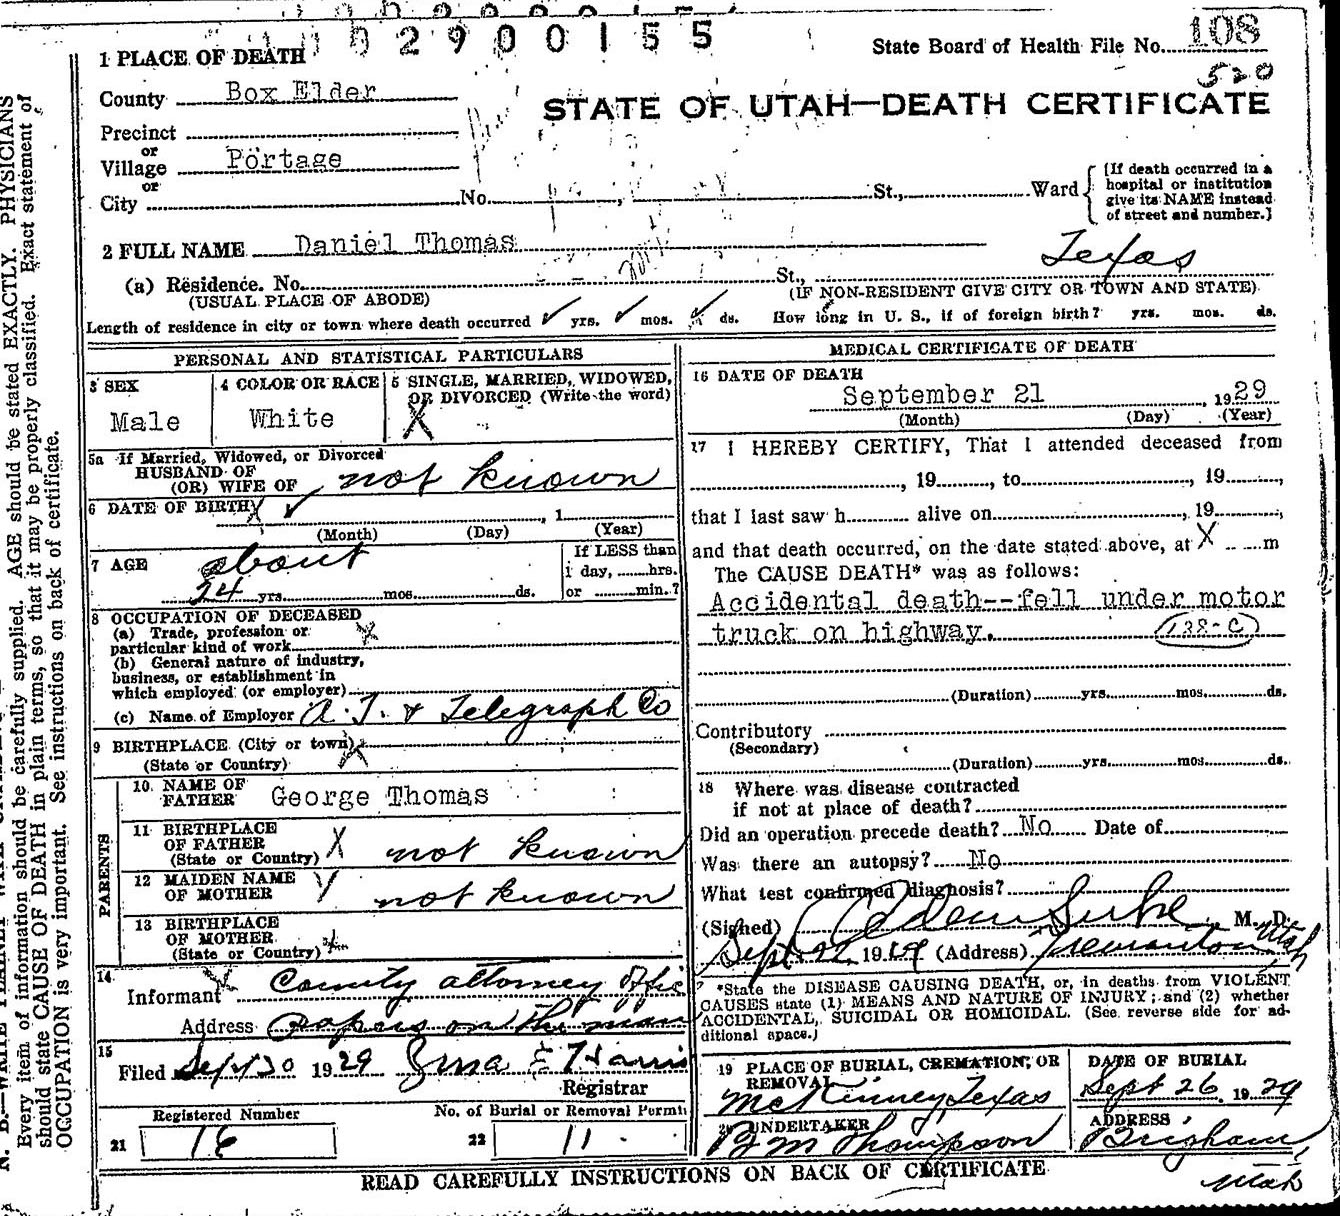 2900155
State Board of Health File No. 108
520
1 PLACE OF DEATH
County Box Elder
STATE OF UTAH—DEATH CERTIFICATE
Precinct
or
Village Portage
or
City No. St., Ward
[If death occurred in a
hospital or institution
give its NAME instead
of street and number.]
2 FULL NAME Daniel Thomas
Texas
(a) Residence. No. St.,
(USUAL PLACE OF ABODE) (IF NON-RESIDENT GIVE CITY OR TOWN AND STATE)
Length of residence in city or town where death occurred ✓ yrs. ✓ mos. ✓ ds. How long in U. S., if of foreign birth? yrs. mos. ds.
PERSONAL AND STATISTICAL PARTICULARS
3 SEX
Male
4 COLOR OR RACE
White
5 SINGLE, MARRIED, WIDOWED,
OR DIVORCED (Write the word)
X
5a If Married, Widowed, or Divorced
HUSBAND OF
(OR) WIFE OF not known
6 DATE OF BIRTH X ✓ , 1
(Month) (Day) (Year)
7 AGE about
24 yrs. mos. ds.
If LESS than
1 day, hrs.
or min.?
8 OCCUPATION OF DECEASED
(a) Trade, profession or
particular kind of work X
(b) General nature of industry,
business, or establishment in
which employed (or employer)
(c) Name of Employer A. T. & Telegraph Co
9 BIRTHPLACE (City or town)
(State or Country) X
PARENTS
10 NAME OF
FATHER George Thomas
11 BIRTHPLACE
OF FATHER
(State or Country) X not known
12 MAIDEN NAME
OF MOTHER not known
13 BIRTHPLACE
OF MOTHER
(State or Country)
14
Informant County attorney Offic
Address papers on the man
15
Filed Sept 30 1929 Erma E Harris
Registrar
Registered Number
21 16
No. of Burial or Removal Permit
22 11
MEDICAL CERTIFICATE OF DEATH
16 DATE OF DEATH
September 21, 1929
(Month) (Day) (Year)
17 I HEREBY CERTIFY, That I attended deceased from
, 19 , to , 19 ,
that I last saw h alive on , 19 ,
and that death occurred, on the date stated above, at X m
The CAUSE DEATH* was as follows:
Accidental death--fell under motor
truck on highway. 138-C
(Duration) yrs. mos. ds.
Contributory
(Secondary)
(Duration) yrs. mos. ds.
18 Where was disease contracted
if not at place of death?
Did an operation precede death? No Date of
Was there an autopsy? No
What test confirmed diagnosis?
(Signed) M. D.
Sept 22 1929 (Address) Tremonton Utah
*State the DISEASE CAUSING DEATH, or, in deaths from VIOLENT
CAUSES state (1) MEANS AND NATURE OF INJURY; and (2) whether
ACCIDENTAL, SUICIDAL OR HOMICIDAL. (See reverse side for ad-
ditional space.)
19 PLACE OF BURIAL, CREMATION, OR
REMOVAL
McKinney, Texas
DATE OF BURIAL
Sept 26, 1929
20 UNDERTAKER
B M Thompson
ADDRESS
Brigham,
Utah
READ CAREFULLY INSTRUCTIONS ON BACK OF CERTIFICATE
Every item of information should be carefully supplied. AGE should be stated EXACTLY. PHYSICIANS
should state CAUSE OF DEATH in plain terms, so that it may be properly classified. Exact statement of
OCCUPATION is very important. See instructions on back of certificate.